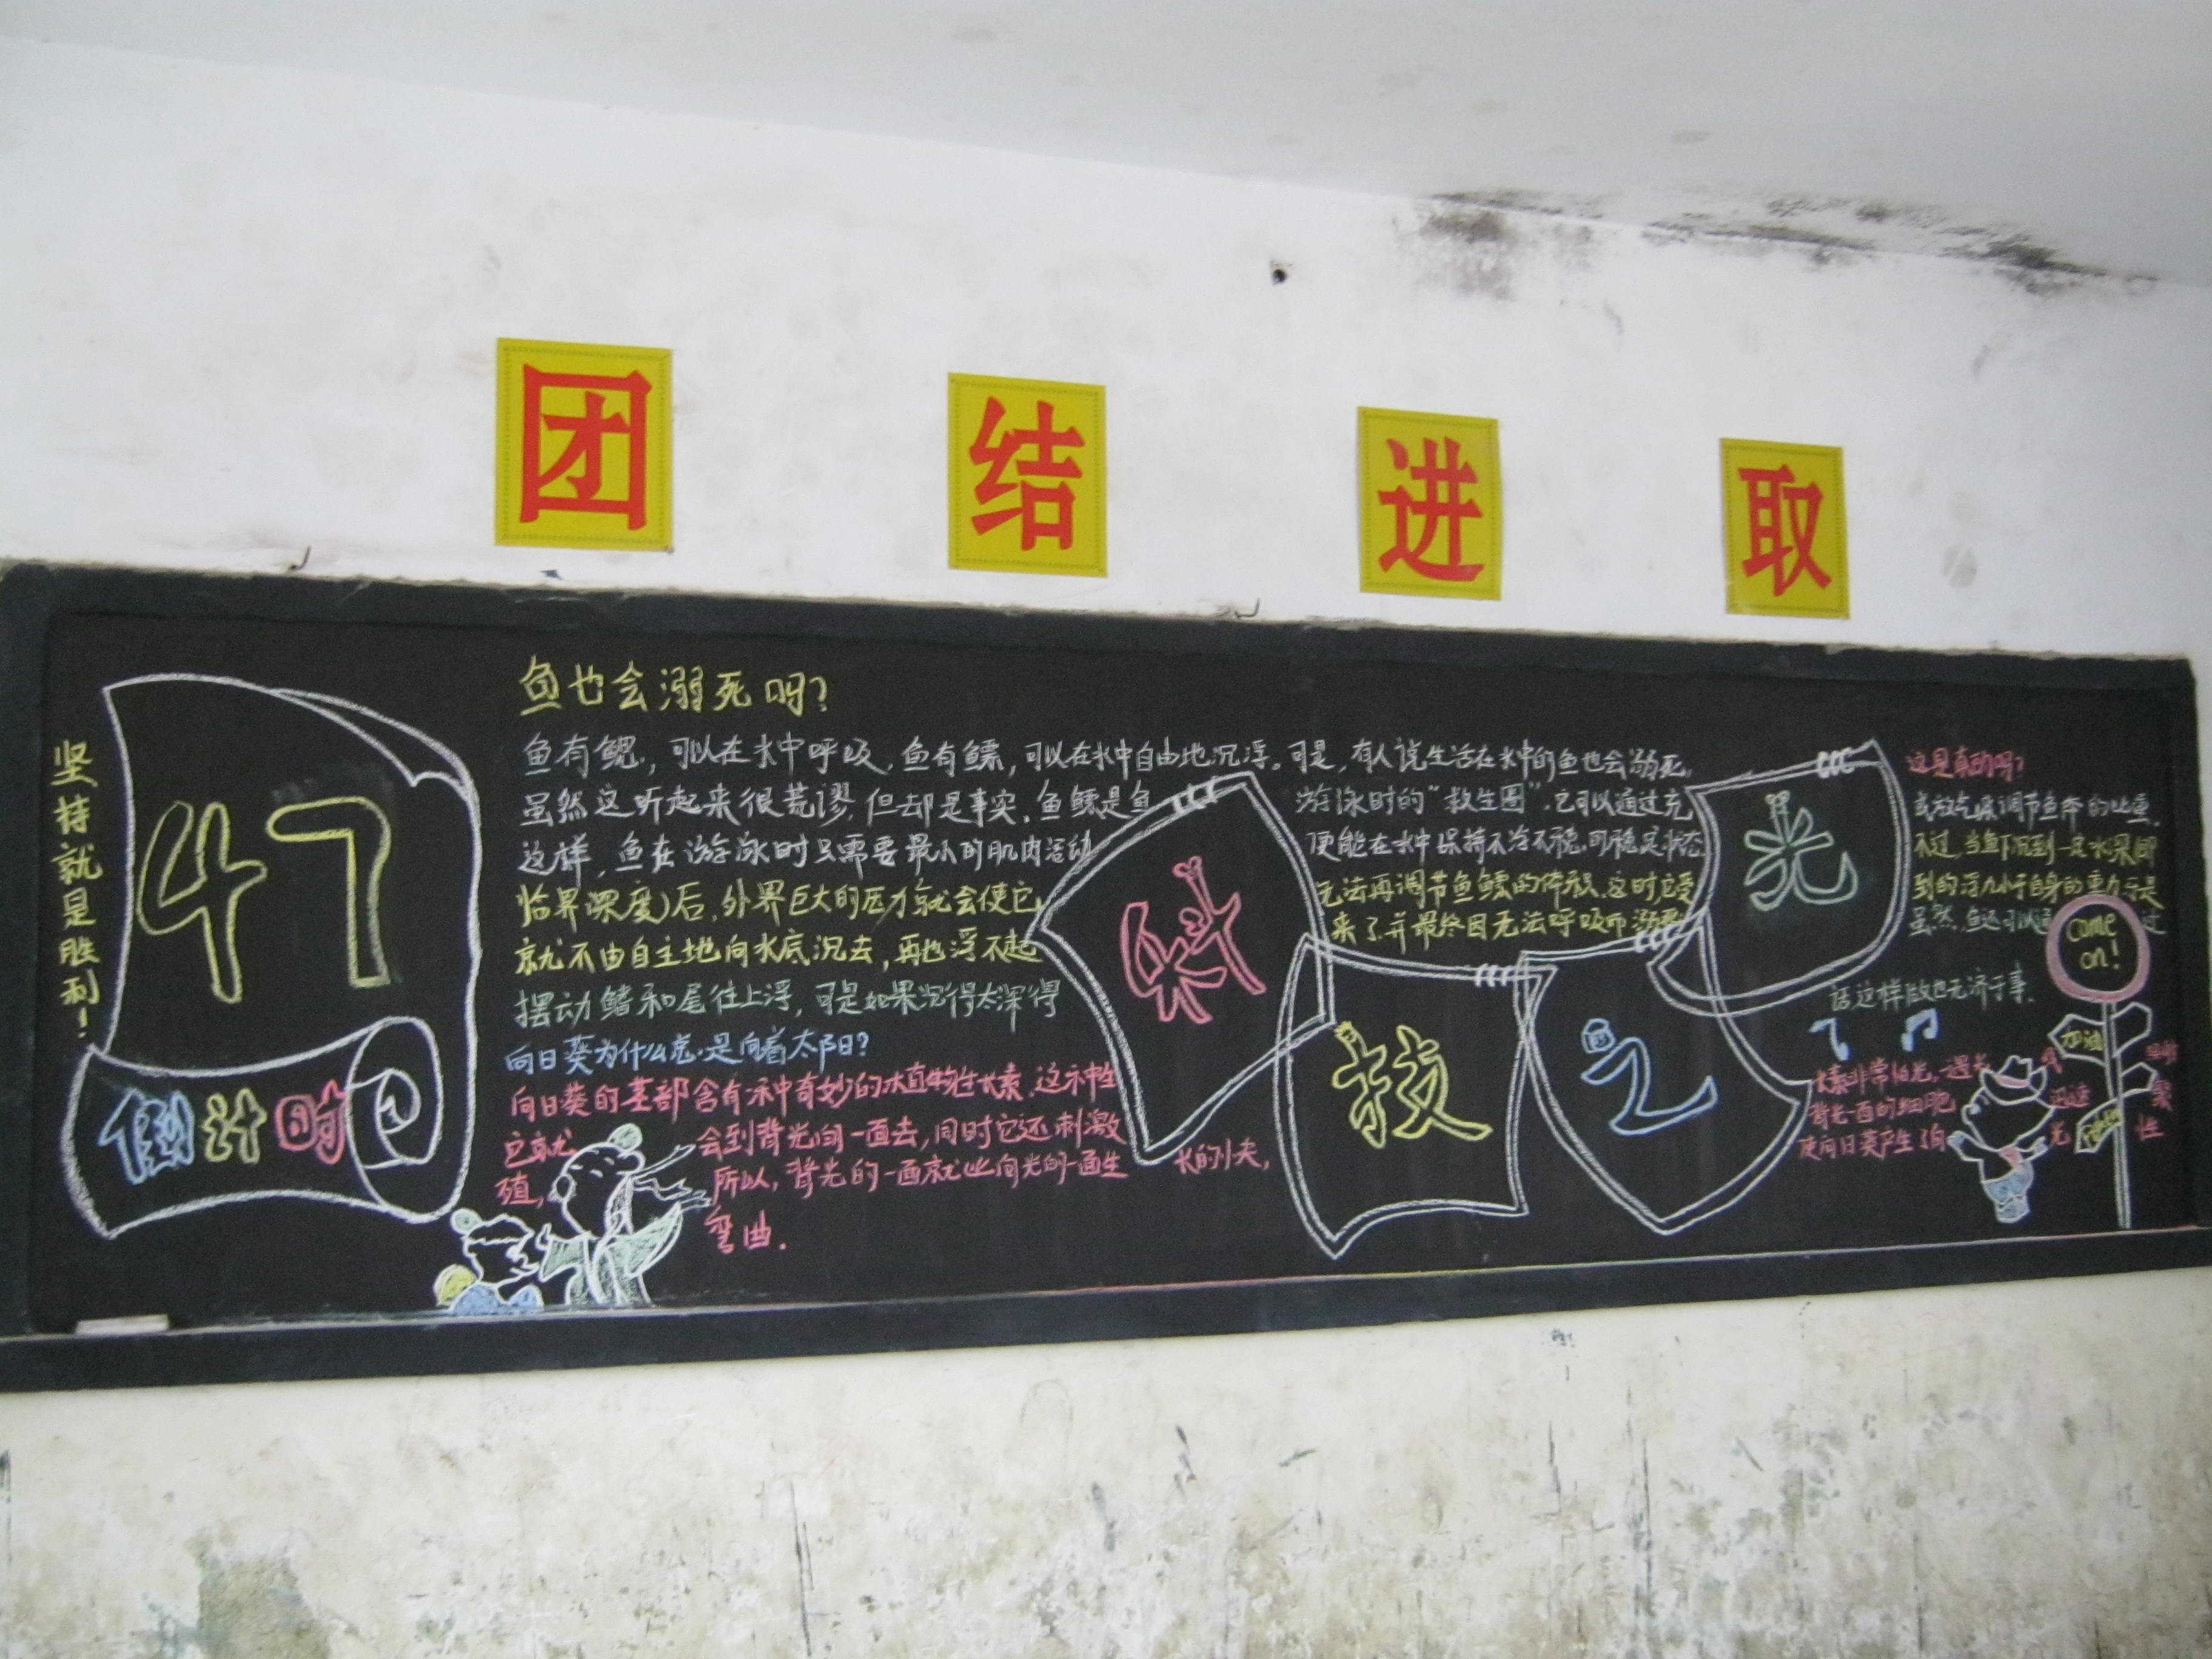 团结进取
坚持就是胜利！
47
倒计时
鱼也会溺死吗？
鱼有鳃，可以在水中呼吸，鱼有鳔，可以在水中自由地沉浮。可是，有人说生活在水中的鱼也会溺死，这是真的吗？
虽然这听起来很荒谬，但却是事实。鱼鳔是鱼游泳时的“救生圈”，它可以通过充或放气来调节鱼体的比重。
这样，鱼在游泳时只需要最小的肌肉活动便能在水中保持不沉不浮的稳定状态
不过，当鱼下沉到一定水深即
临界深度）后，外界巨大的压力就会使它无法再调节鱼鳔的体积。这时，它受到的浮力小于自身的重力，于是
就不由自主地向水底沉去，再也浮不起来了，并最终因无法呼吸而溺死
虽然，鱼还可以通过
摆动鳍和尾往上浮，可是如果沉得太深得话，这样做也无济于事。
向日葵为什么总是向着太阳？
向日葵的茎部含有一种奇妙的植物生长素。这种生长素非常怕光。一遇光
它就会到背光的一面去，同时它还刺激背光一面的细胞迅速繁
殖，所以，背光的一面就比向光的一面生长的快，使向日葵产生了向光性
弯曲.
科技之光
come
on!
加油